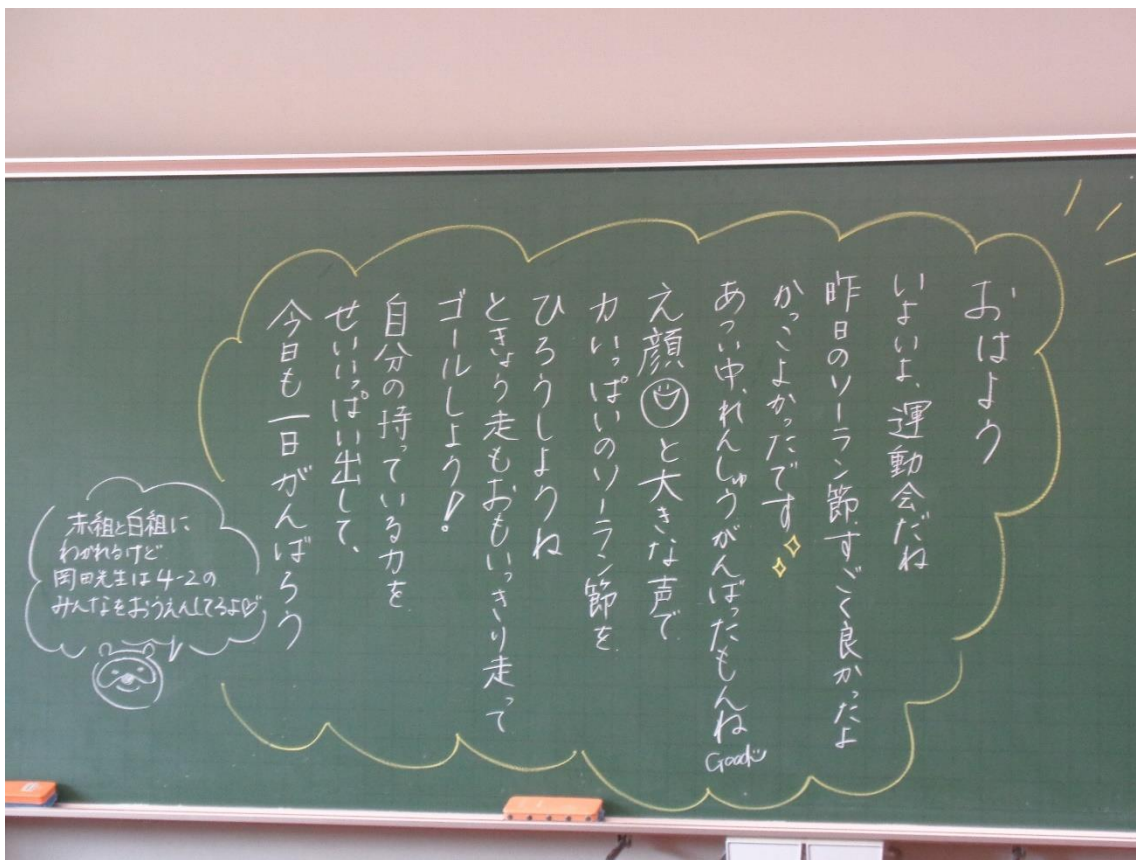 おはよう
いよいよ、運動会だね
昨日のソーラン節、すごく良かったよ
かっこよかったです
あつい中、れんしゅうがんばったもんね Good
え顔と大きな声で
力いっぱいのソーラン節を
ひろうしようね
ときょう走もおもいっきり走って
ゴールしよう!
自分の持っている力を
せいいっぱい出して、
今日も一日がんばろう
赤組と白組に
わかれるけど
岡田先生は4-2の
みんなをおうえんしてるよ♡